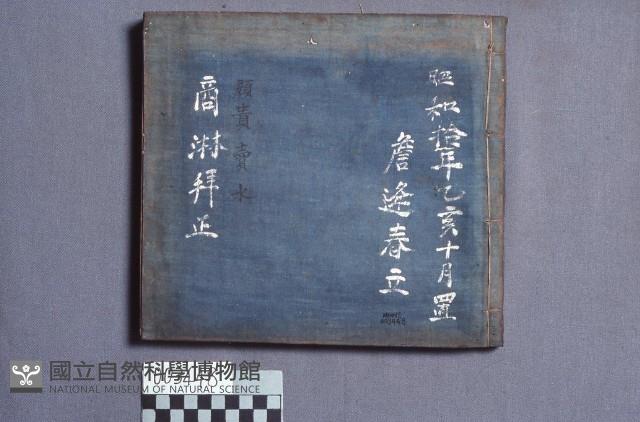 昭和拾年乙亥十月置
詹逢春立
顏貴賣水
商淋拜正
國立自然科學博物館
NATIONAL MUSEUM OF NATURAL SCIENCE